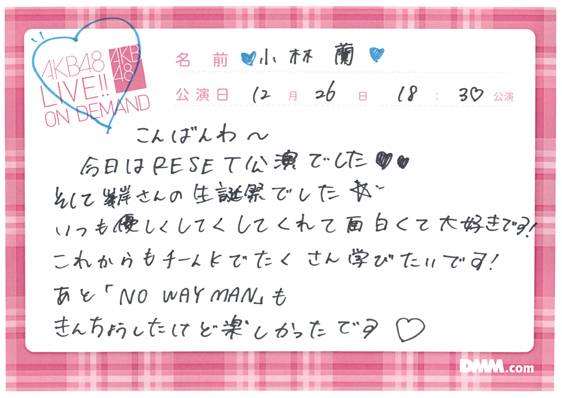 AKB48
LIVE!!
ON DEMAND
AKB
48
名前 小林蘭
公演日 12月26日 18:30公演
こんばんわ〜
今日はRESET公演でした
そして峯岸さんの生誕祭でした☆
いつも優しくしてくしてくれて面白くて大好きです!
これからもチームKでたくさん学びたいです!
あと「NO WAY MAN」も
きんちょうしたけど楽しかったです♡
DMM.com